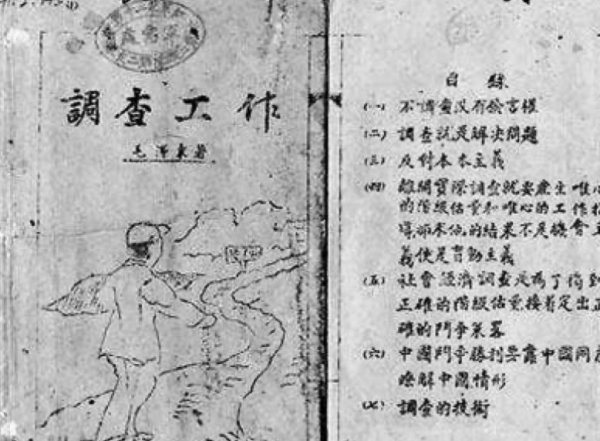 調查工作
毛澤東著
目錄
(一) 不調查沒有發言權
(二) 調查就是解決問題
(三) 反對本本主義
(四) 離開實際調查就要產生唯心
的階級估量和唯心的工作指
導那末他的結果不是機會主
義便是盲動主義
(五) 社會經濟調查是爲了得到
正確的階級估量接着定出正
確的鬥爭策畧
(六) 中國鬥爭勝利要靠中國同志
瞭解中國情形
(七) 調查的技術